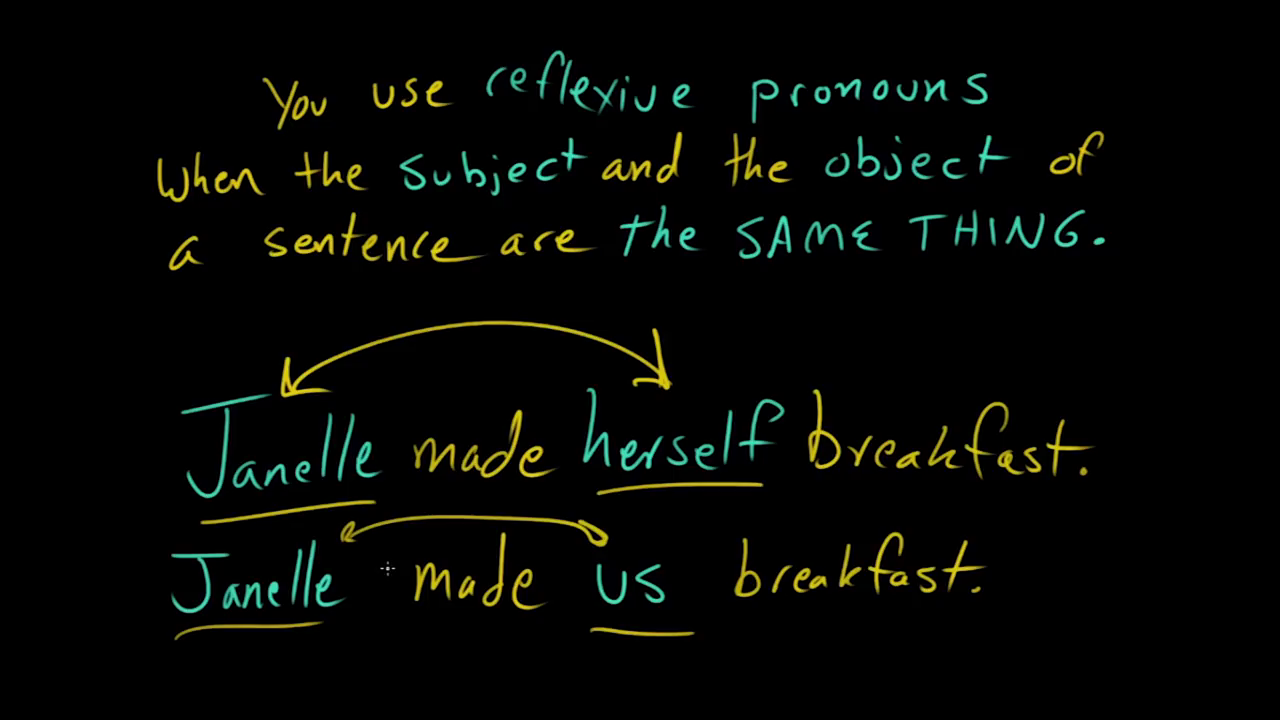 You use reflexive pronouns
When the subject and the object of
a sentence are the SAME THING.
Janelle made herself breakfast.
Janelle made us breakfast.